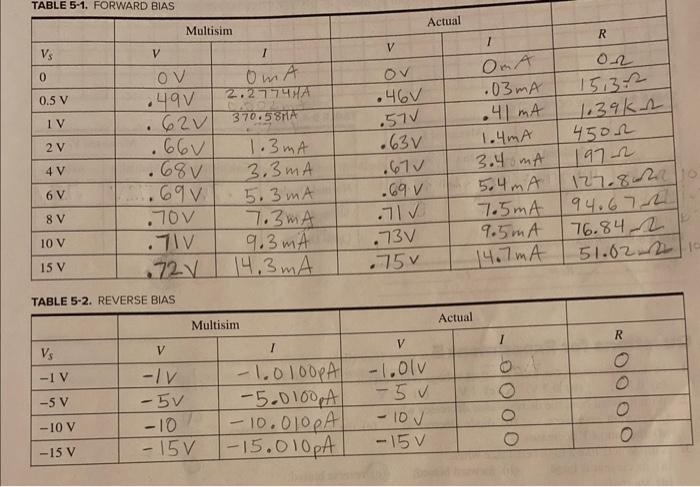 TABLE 5-1. FORWARD BIAS
Multisim Actual
Vs V I V I R
0 0V 0mA 0V 0mA 0Ω
0.5 V .49V 2.2774μA .46V .03mA 15,3Ω
1 V .62V 370.58μA .57V .41 mA 1.39KΩ
2 V .66V 1.3mA .63V 1.4mA 450Ω
4 V .68V 3.3mA .67V 3.4 mA 197Ω
6 V .69V 5.3mA .69V 5.4mA 127.8Ω
8 V .70V 7.3mA .71V 7.5mA 94.67Ω
10 V .71V 9.3mA .73V 9.5mA 76.84Ω
15 V .72V 14.3mA .75V 14.7mA 51.02Ω
TABLE 5-2. REVERSE BIAS
Multisim Actual
Vs V I V I R
−1 V -1V -1.0100pA -1.01V 0 0
−5 V -5V -5.0100pA -5V 0 0
−10 V -10 -10.010pA -10V 0 0
−15 V -15V -15.010pA -15V 0 0